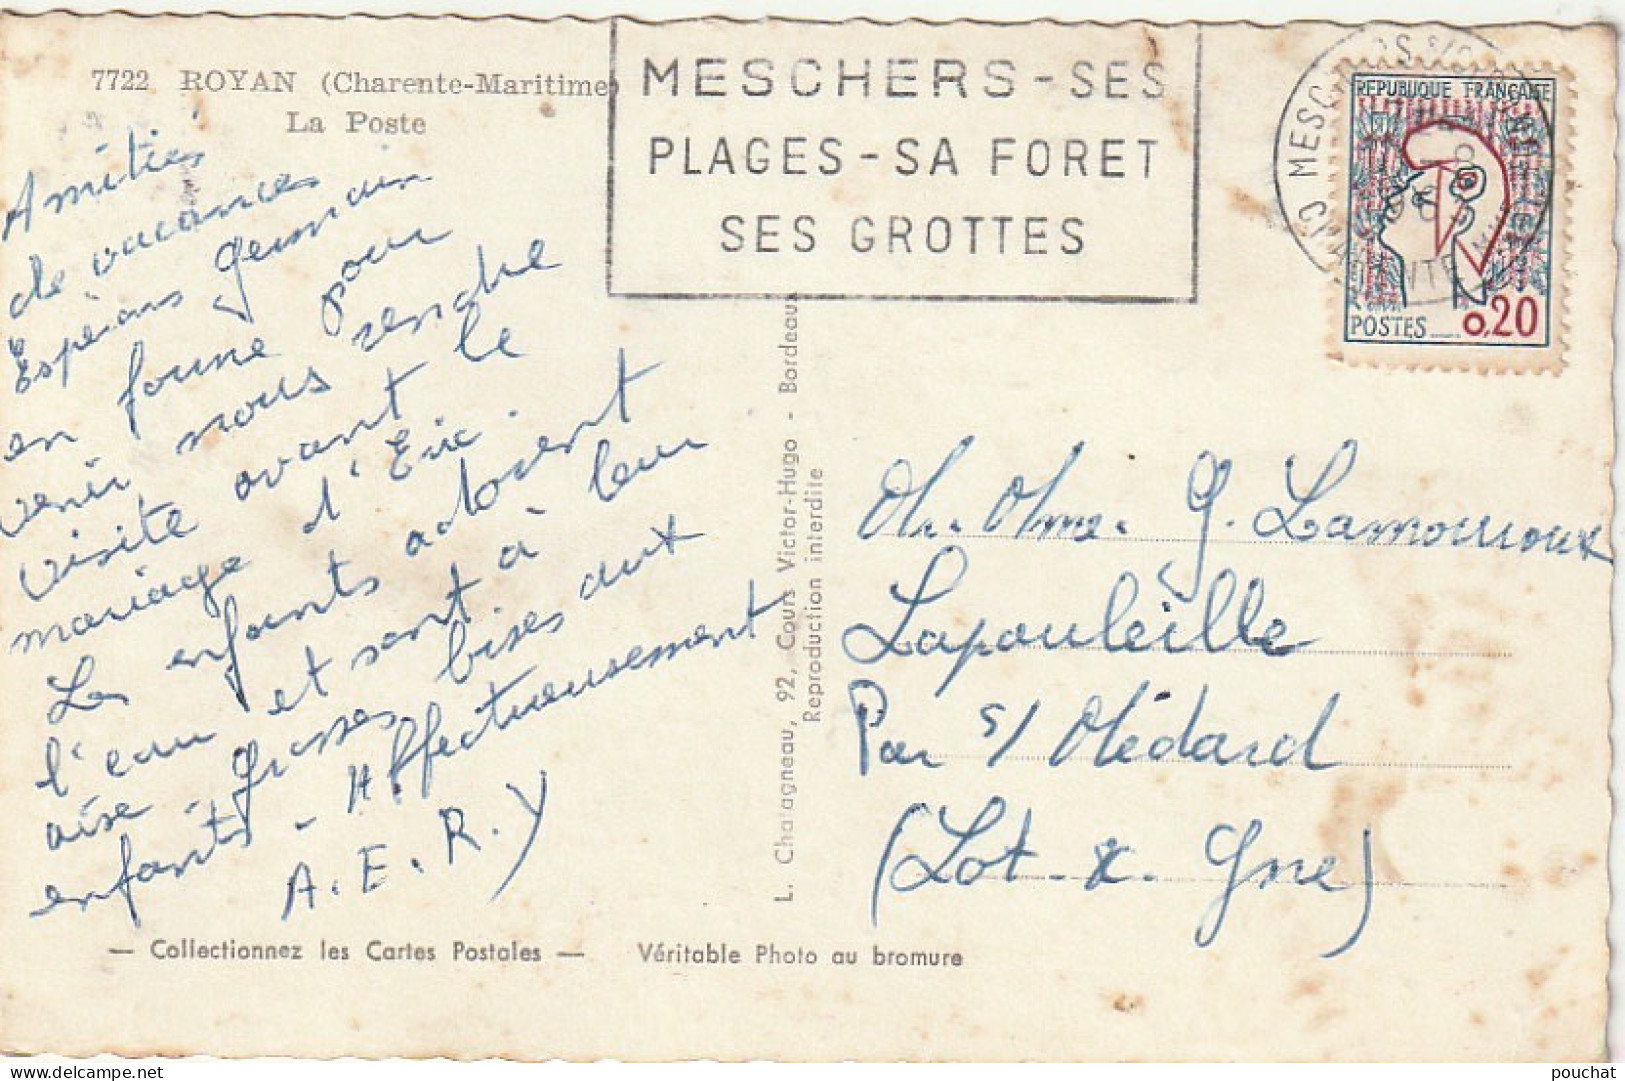 7722 ROYAN (Charente-Maritime)
La Poste
Amitiés
de vacances
Espérons Germain
en forme pour
venir nous rendre
visite avant le
mariage d'Eric.
Les enfants adorent
l'eau et sont à leur
aise - grosses bises aux
enfants - Affectueusement
A.E.R.Y
— Collectionnez les Cartes Postales —
Véritable Photo au bromure
L. Chatagneau, 92, Cours Victor-Hugo - Bordeaux
Reproduction interdite
MESCHERS - SES
PLAGES - SA FORET
SES GROTTES
REPUBLIQUE FRANÇAISE
POSTES 0,20
M. Mme. G. Lamouroux
Lapouleille
Par St Médard
(Lot. &. Gne)
pouchat